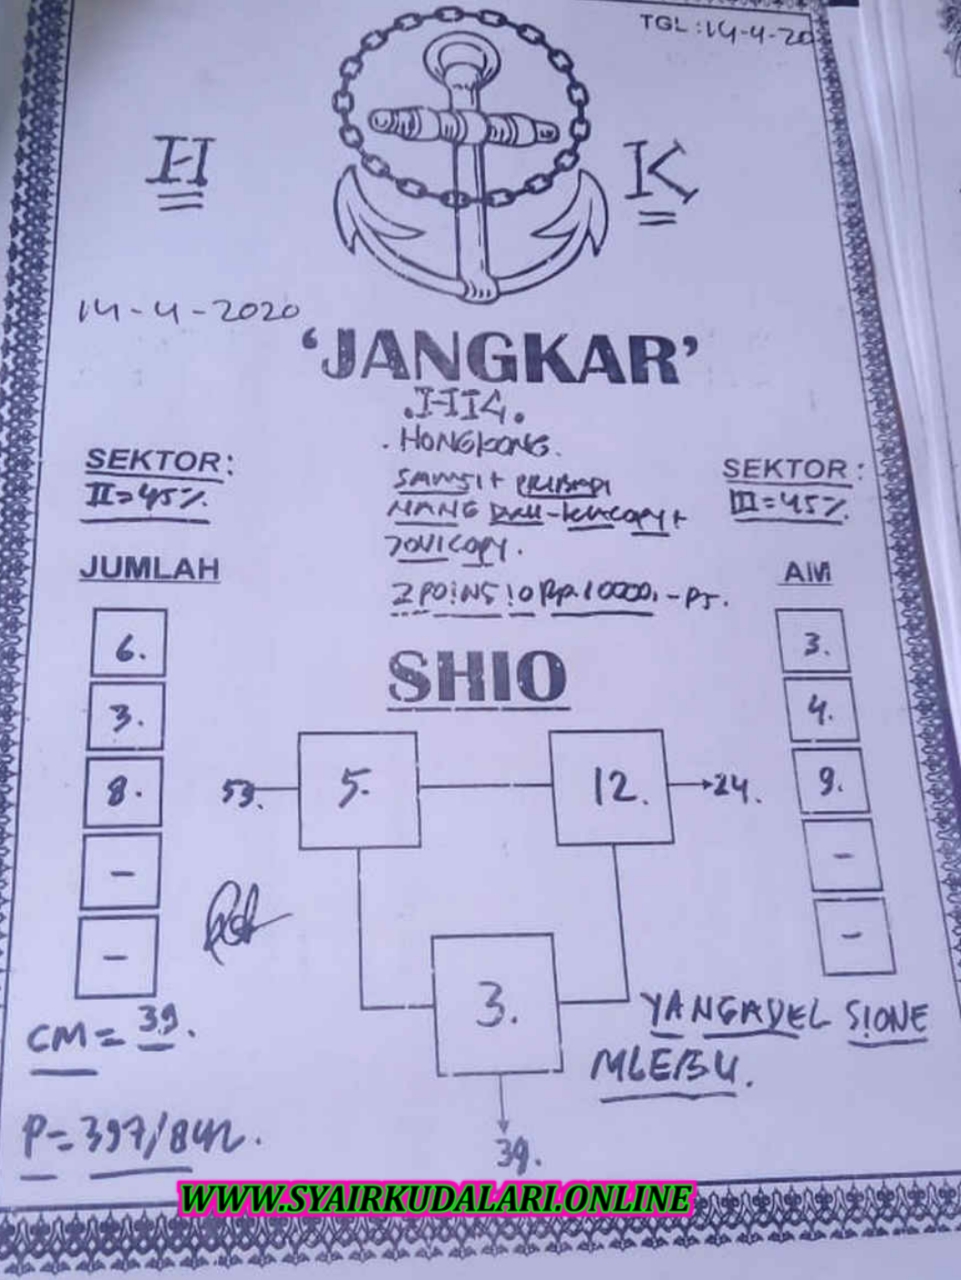 TGL : 14-4-20
H K
14-4-2020
'JANGKAR'
HONGKONG.
SEKTOR:
II=45%
SEKTOR:
III=45%
2 POINS !0 Rp.10000,-
JUMLAH
AM
6.
3.
8.
-
-
3.
4.
9.
-
-
SHIO
53.
5.
12.
24.
3.
39.
CM = 39.
P= 397/842.
YANGADEL SIONE
MLEBU.
WWW.SYAIRKUDALARI.ONLINE